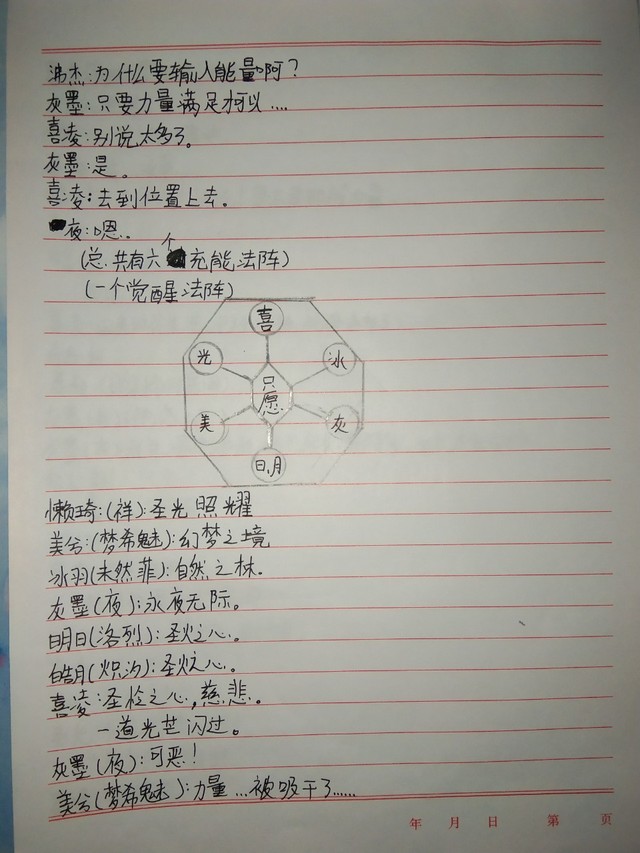 沸杰:为什么要输入能量啊?
灰墨:只要力量满足才可以....
喜凌:别说太多了。
灰墨:是。
喜凌:去到位置上去。
夜:嗯..
(总共有六个充能法阵)
(一个觉醒法阵)
喜
光
冰
只愿
美
灰
日月
懒琦:(祥):圣光照耀
美兮:(梦希魅):幻梦之境
冰羽(未然菲):自然之林.
灰墨(夜):永夜无际。
明日(洛烈):圣火之心.。
皓月(炽沟):圣火之心。
喜凌:圣栓之心,慈悲。
一道光芒闪过。
灰墨(夜):可恶!
美兮(梦希魅):力量...被吸干了......
年 月 日 第 页